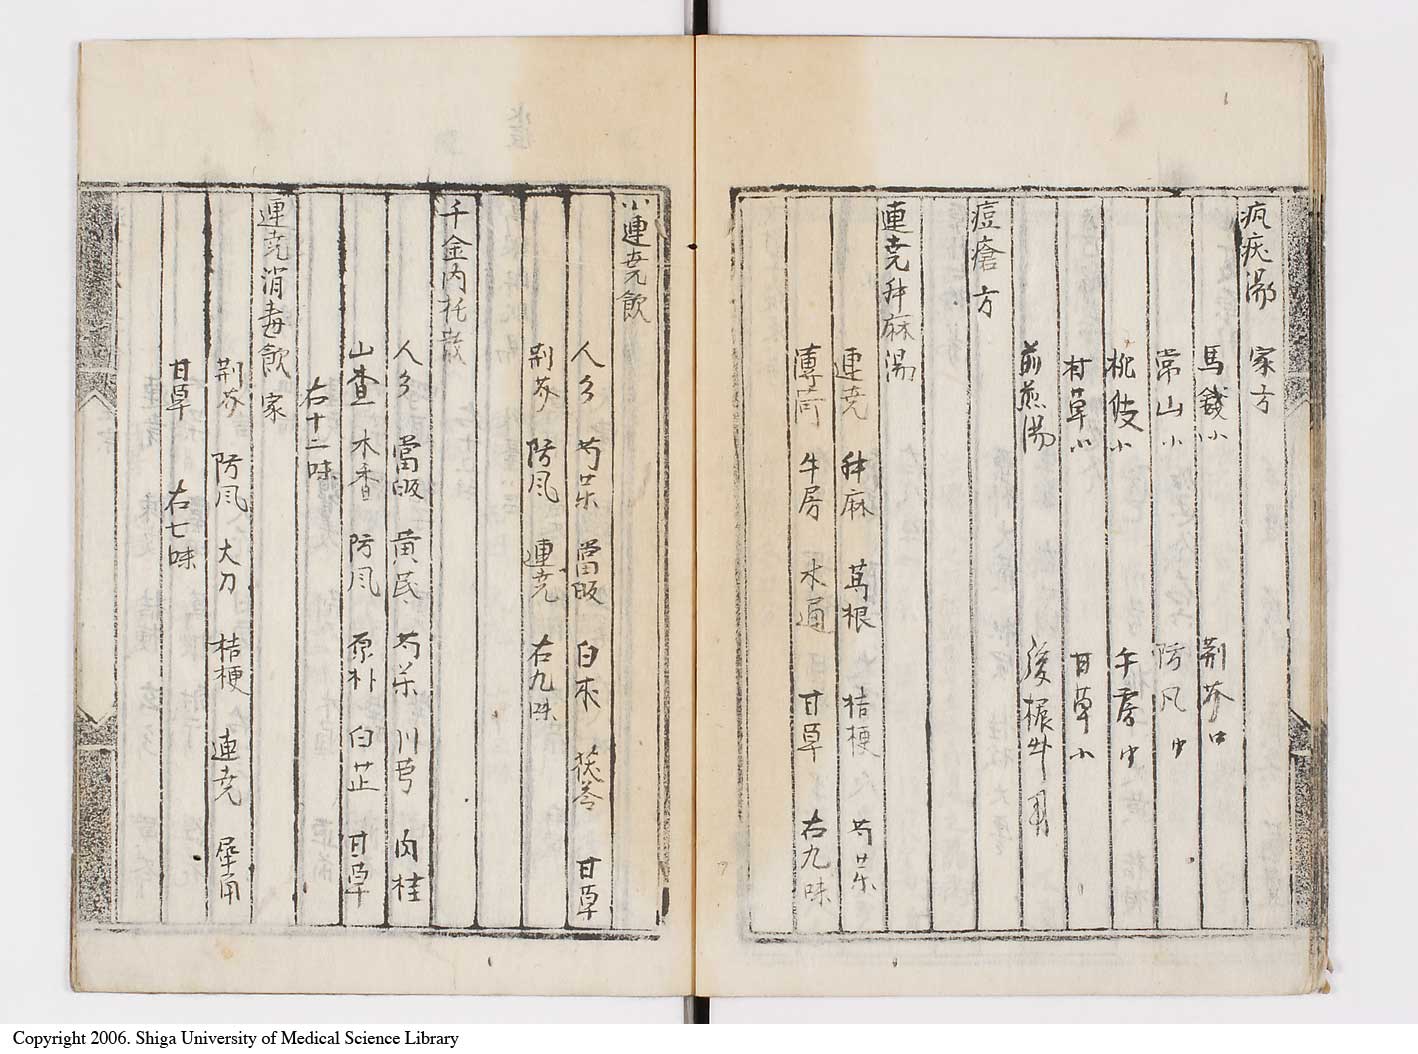 疯疾湯 家方
馬錢小 荊芥中
常山小 防凡中
枇伎小 牛房中
村草小 甘草小
前煎湯 後梔牛用
痘瘡方
連尭升麻湯
連尭 升麻 葛根 桔梗 芍藥
薄荷 牛房 木通 甘草 右九味
小連尭飲
人参 芍薬 當皈 白朮 茯苓 甘草
荊芥 防風 連尭 右九味
千金內托散
人参 當皈 黄芪 芍薬 川芎 肉桂
山査 木香 防風 厚朴 白芷 甘草
右十二味
連尭消毒飲 家
荊芥 防風 大力 桔梗 連尭 犀角
甘草 右七味
Copyright 2006. Shiga University of Medical Science Library